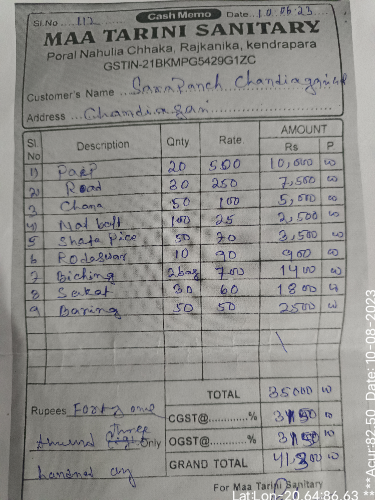 Sl.No 112 Cash Memo Date 10.06.23
MAA TARINI SANITARY
Poral Nahulia Chhaka, Rajkanika, kendrapara
GSTIN-21BKMPG5429G1ZC
Customer's Name Sarapanch Chandiagadi
Address Chandiagadi
Sl. No Description Qnty Rate AMOUNT Rs P
1) Paip 20 500 10,000 00
2) Road 30 250 7,500 00
3 Chana 50 100 5,000 00
4) Nat balt 100 25 2,500 00
5 Shafe Pice 50 70 3,500 00
6 Rodaswar 10 90 900 00
7 Biching 2bag 700 1400 00
8 Sakat 30 60 1800 00
9 Baring 50 50 2500 00
TOTAL 35000 00
Rupees Forty one CGST@ %
Three Only OGST@ %
GRAND TOTAL 41,300 00
For Maa Tarini Sanitary
Lat:Lon-20.64:86.63
****Acur:82.50 Date:10-08-2023